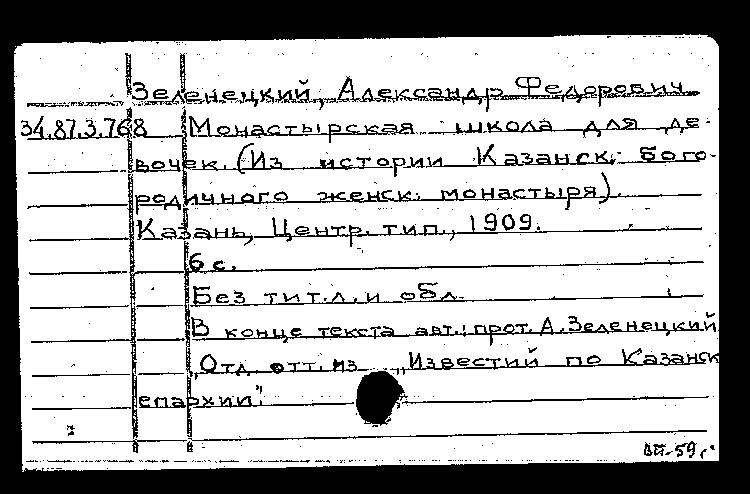 Зеленецкий, Александр Федорович
34.87.3.768 Монастырская школа для де-
вочек. (Из истории Казанск. Бого-
родичного женск. монастыря).
Казань, Центр. тип., 1909.
6 с.
Без тит. л. и обл.
В конце текста авт.: прот. А. Зеленецкий
"Отд. отт. из „Известий по Казанск
епархии"